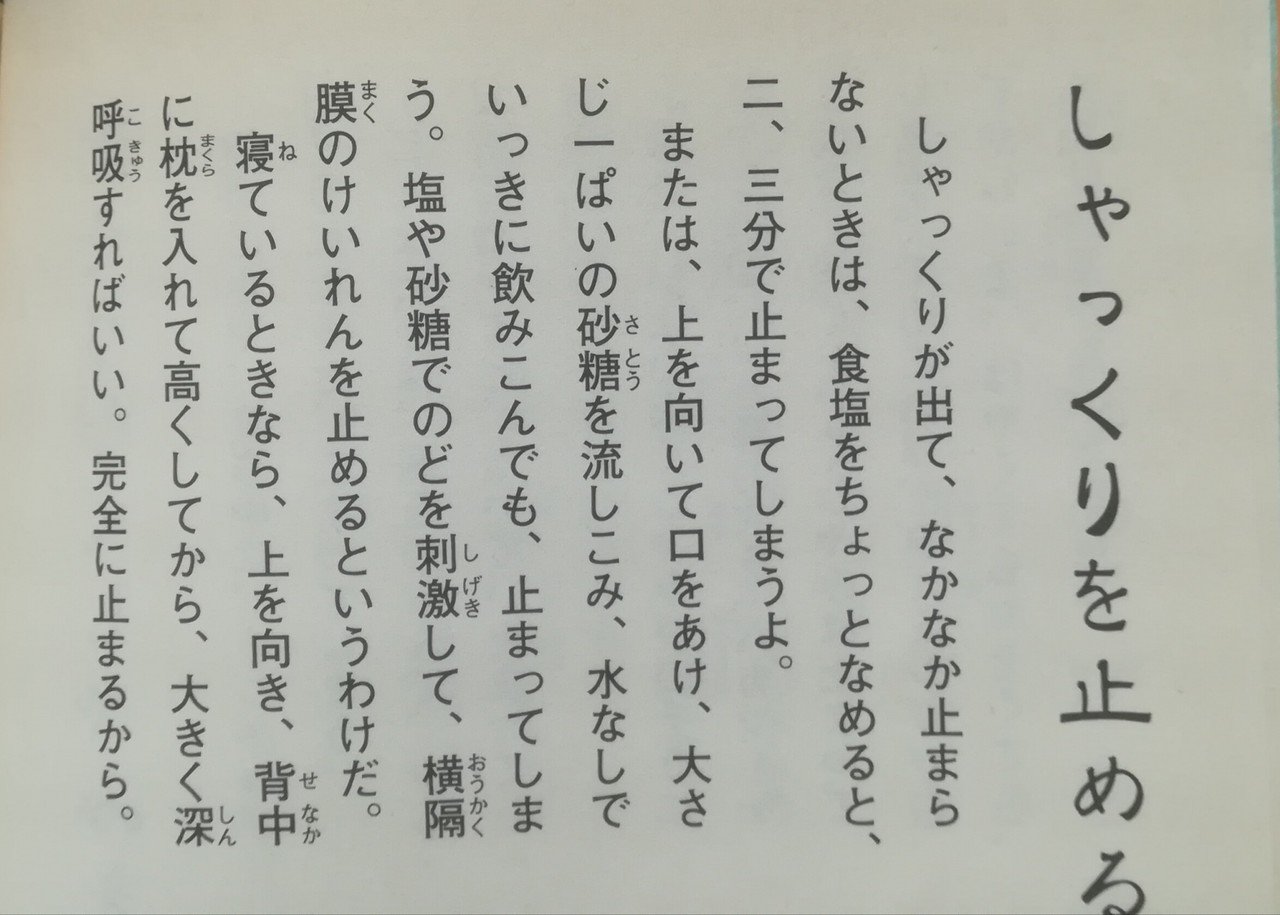 しゃっくりを止める
しゃっくりが出て、なかなか止まら
ないときは、食塩をちょっとなめると、
二、三分で止まってしまうよ。
または、上を向いて口をあけ、大さ
じ一ぱいの砂糖を流しこみ、水なしで
いっきに飲みこんでも、止まってしま
う。塩や砂糖でのどを刺激して、横隔
膜のけいれんを止めるというわけだ。
寝ているときなら、上を向き、背中
に枕を入れて高くしてから、大きく深
呼吸すればいい。完全に止まるから。